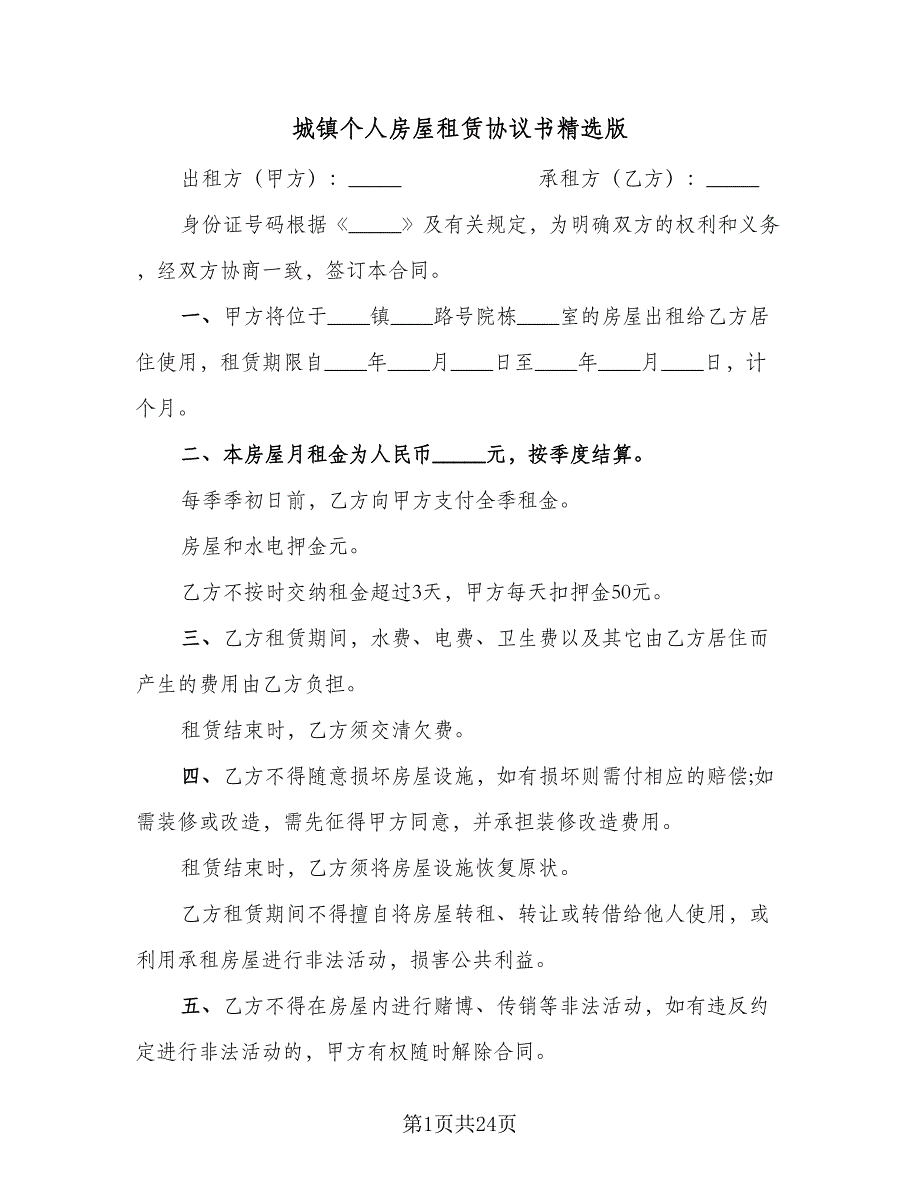 城镇个人房屋租赁协议书精选版
出租方（甲方）：_____ 承租方（乙方）：_____
身份证号码根据《_____》及有关规定，为明确双方的权利和义务
，经双方协商一致，签订本合同。
一、甲方将位于____镇____路号院栋____室的房屋出租给乙方居
住使用，租赁期限自____年____月____日至____年____月____日，计
个月。
二、本房屋月租金为人民币_____元，按季度结算。
每季季初日前，乙方向甲方支付全季租金。
房屋和水电押金元。
乙方不按时交纳租金超过3天，甲方每天扣押金50元。
三、乙方租赁期间，水费、电费、卫生费以及其它由乙方居住而
产生的费用由乙方负担。
租赁结束时，乙方须交清欠费。
四、乙方不得随意损坏房屋设施，如有损坏则需付相应的赔偿;如
需装修或改造，需先征得甲方同意，并承担装修改造费用。
租赁结束时，乙方须将房屋设施恢复原状。
乙方租赁期间不得擅自将房屋转租、转让或转借给他人使用，或
利用承租房屋进行非法活动，损害公共利益。
五、乙方不得在房屋内进行赌博、传销等非法活动，如有违反约
定进行非法活动的，甲方有权随时解除合同。
第1页共24页